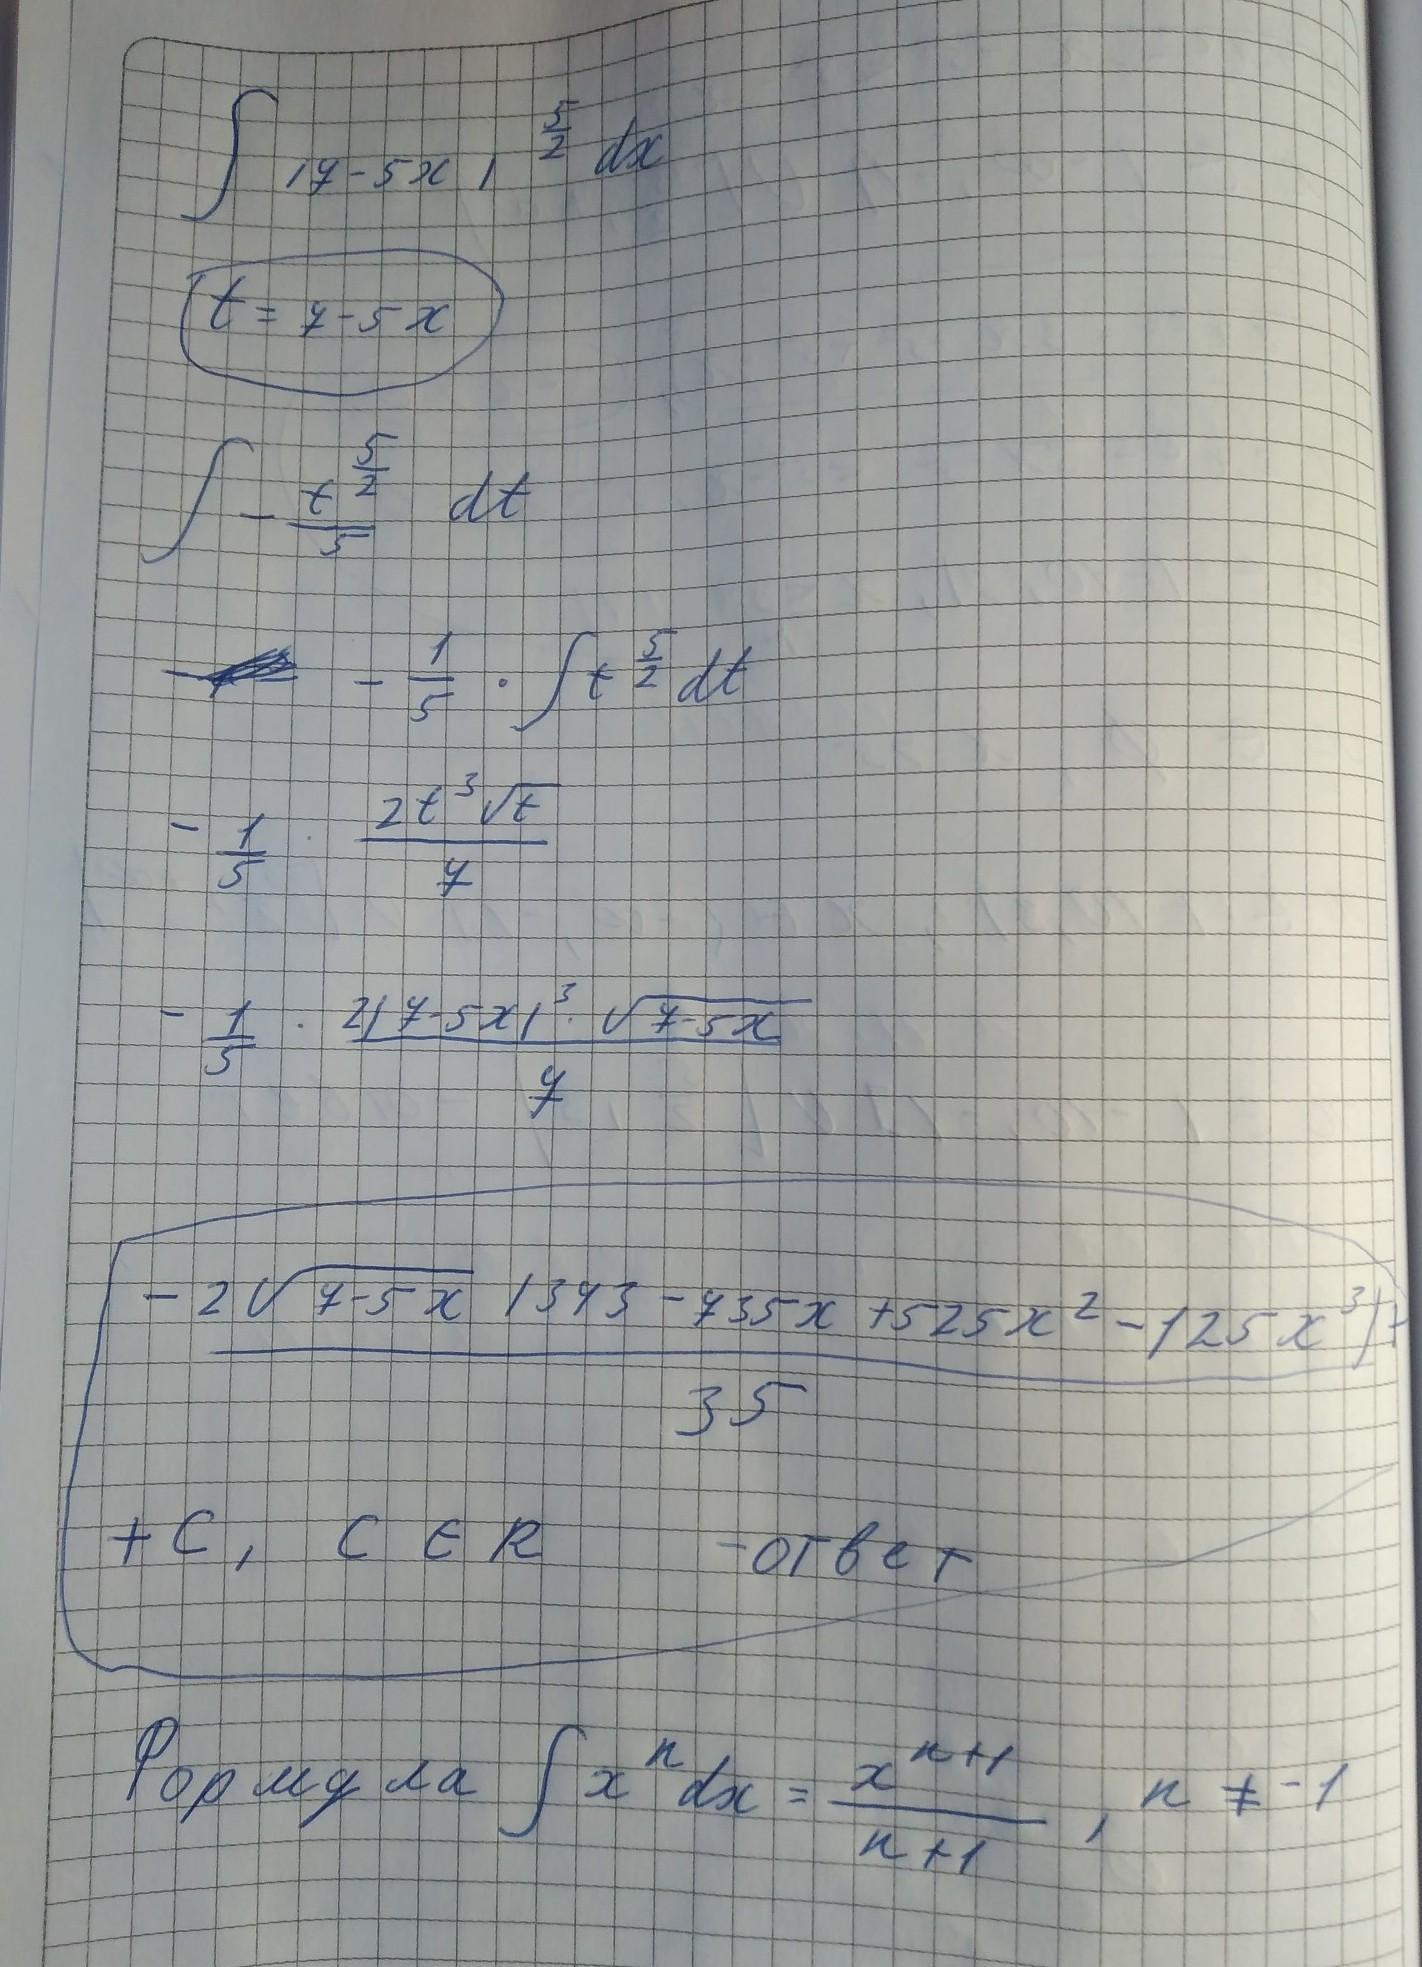 ∫ (7-5x)^{5/2} dx
t = 7-5x
∫ - t^{5/2}/5 dt
- 1/5 · ∫ t^{5/2} dt
- 1/5 · 2t³√t / 7
- 1/5 · 2(7-5x)³ · √(7-5x) / 7
-2√(7-5x) (343 - 735x + 525x² - 125x³) / 35 +
+ C, C ∈ R - ответ
Формула ∫ xⁿ dx = x^{n+1} / (n+1), n ≠ -1